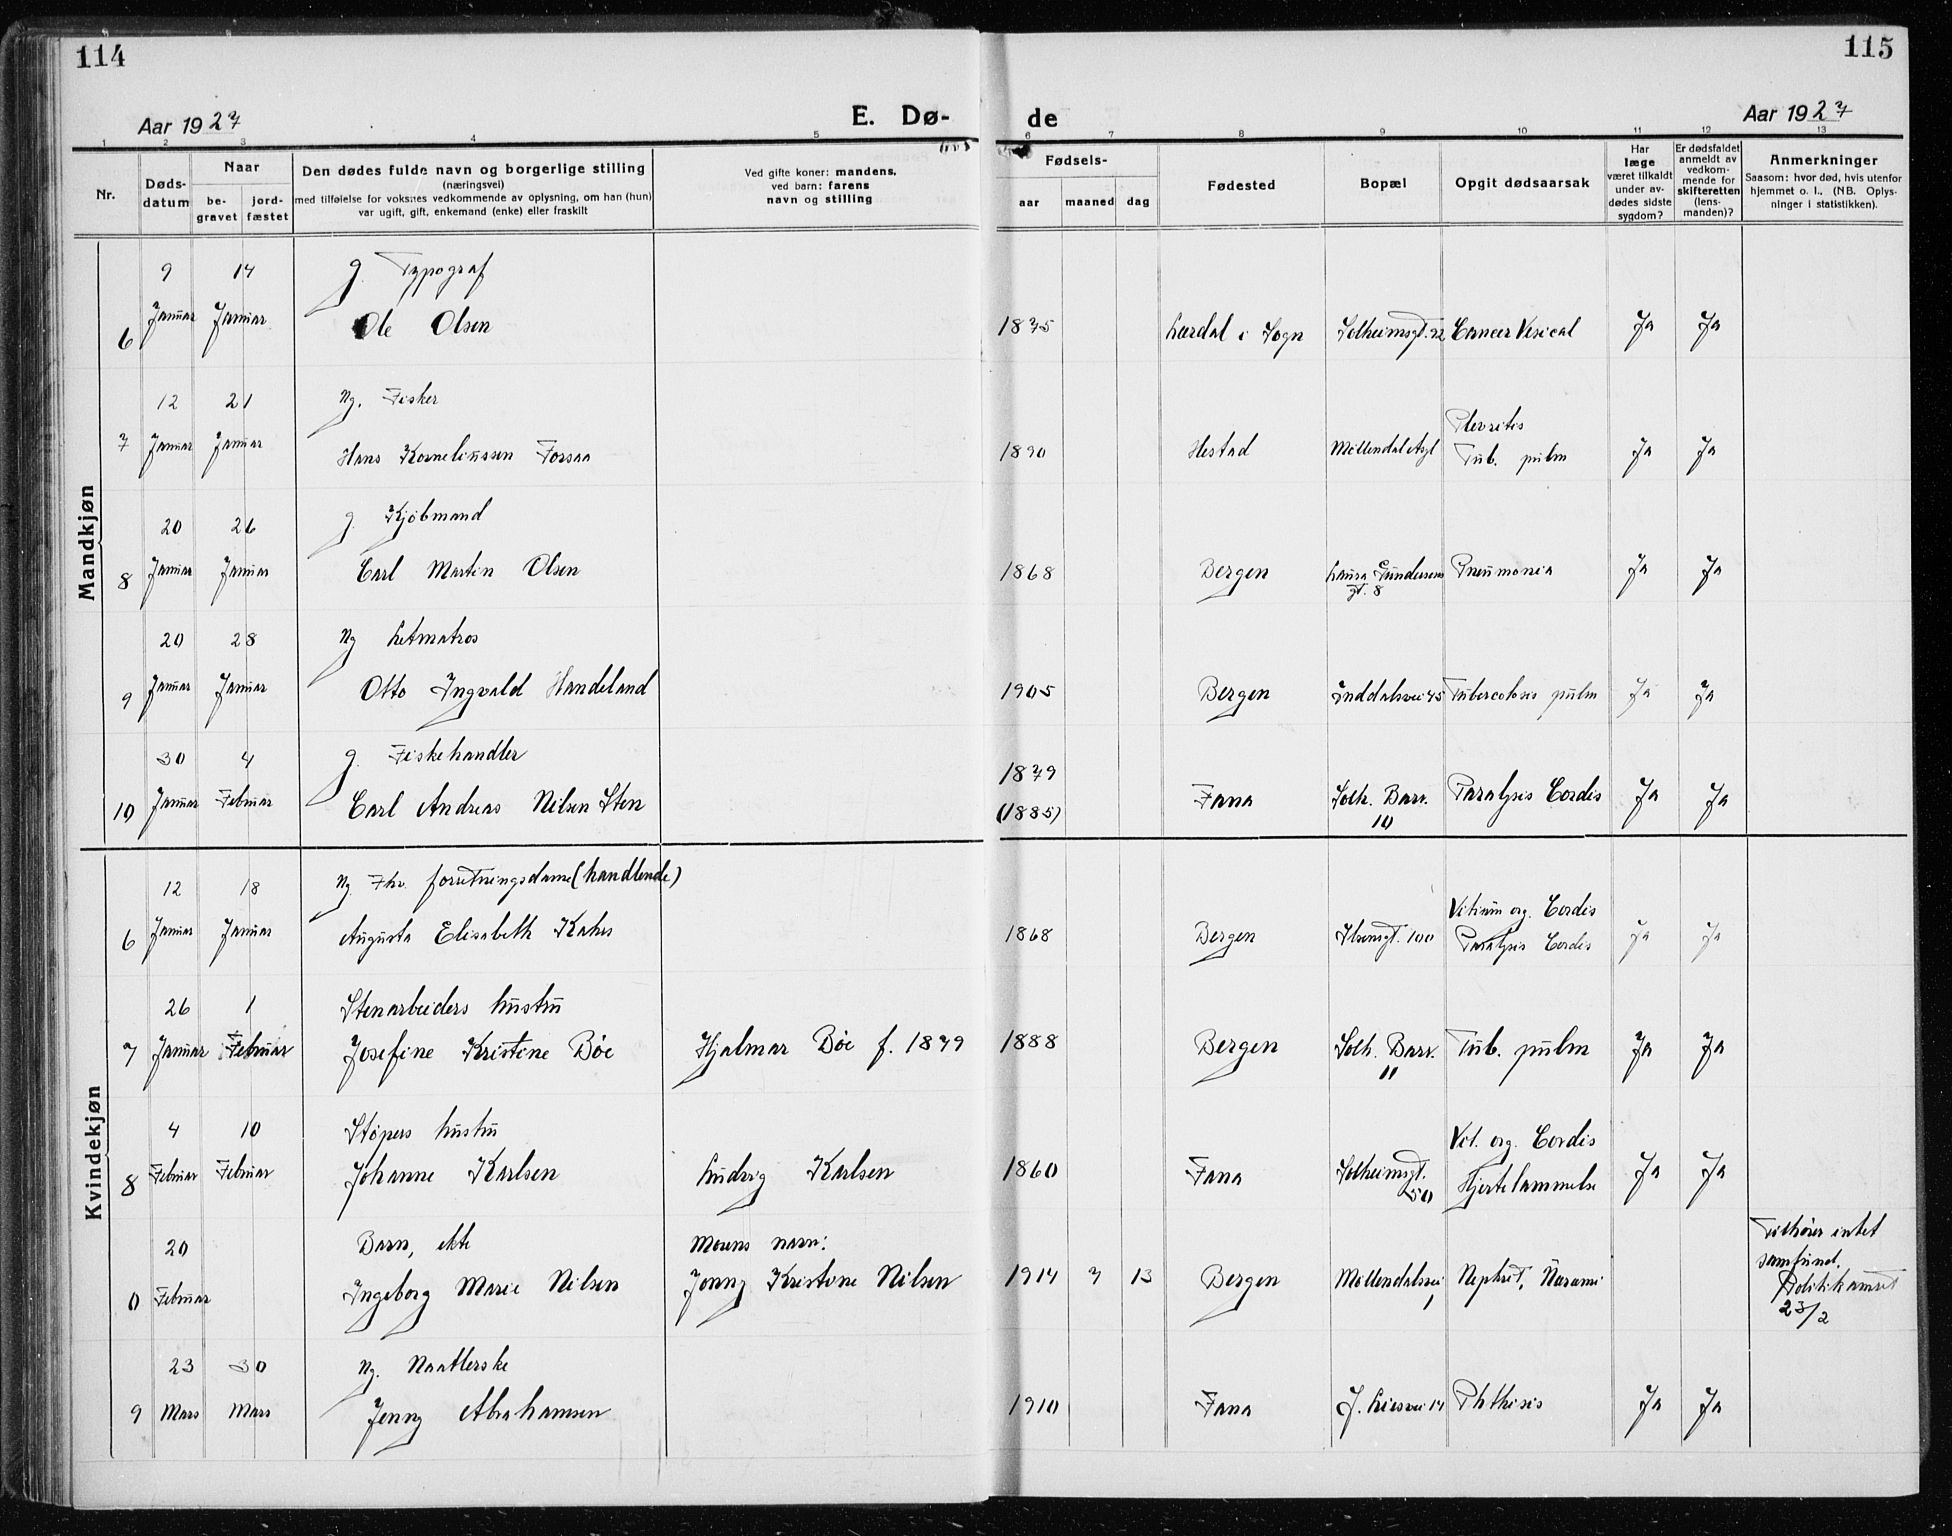 114
115
Aar 1927
E. Dø-
de
Aar 1927
1 2 3 4 5 6 7 8 9 10 11 12 13
Nr.
Døds-
datum
Naar
be-
gravet
jord-
fæstet
Den dødes fulde navn og borgerlige stilling
(næringsvei)
med tilføielse for voksnes vedkommende av oplysning, om han (hun)
var ugift, gift, enkemand (enke) eller fraskilt
Ved gifte koner: mandens,
ved barn: farens
navn og stilling
Fødsels-
aar maaned dag
Fødested
Bopæl
Opgit dødsaarsak
Har
læge
været tilkaldt
under av-
dødes sidste
sygdom?
Er dødsfaldet
anmeldt av
vedkom-
mende for
skifteretten
(lens-
manden)?
Anmerkninger
Saasom: hvor død, hvis utenfor
hjemmet o. l., (NB. Oplys-
ninger i statistikken).
Mandkjøn
9 14 g. Typograf
6 Januar Januar Ole Olsen 1875 Lærdal i Sogn Solheimsgt. 22 Cancer Vesical Ja Ja
12 21 Ug. Fisker Plevritis
7 Januar Januar Hans Korneliussen Forsaa 1890 Hestad Möllendal Asyl Tub. pulm Ja Ja
20 26 g. Kjøbmand
8 Januar Januar Carl Martin Olsen 1868 Bergen Laura Gundersens Pneumonia Ja Ja
gt. 8
20 28 Ug Letmatros
9 Januar Januar Otto Ingvald Handeland 1905 Bergen Inddalsvei 45 Tubercolosis pulm Ja Ja
30 4 g. Fiskehandler 1879
10 Januar Februar Carl Andreas Nilsen Sten (1885) Fana Solh. Barr. Paralysis Cordis Ja Ja
10
Kvindekjøn
12 18 Ug. Fhv. foretningsdame (handlende) Vitium org. Cordis
6 Januar Januar Augusta Elisabeth Kahrs 1868 Bergen Ibsensgt. 100 Paralysis Cordis Ja Ja
26 1 Stenarbeiders hustru
7 Januar Februar Josefine Kristine Bøe Hjalmar Bøe f. 1879 1888 Bergen Solh. Barr. Tub. pulm Ja Ja
11
4 10 Støpers hustru Vit. org. Cordis
8 Februar Februar Johanne Karlsen Ludvig Karlsen 1860 Fana Solheimsgt. Hjertelammelse Ja Ja
50
20 Barn, ekte Morens navn: Tilhører intet
samfund.
0 Februar Ingeborg Marie Nilsen Jenny Kristine Nilsen 1914 7 13 Bergen Möllendalsvei Nephrit, Uræmi Politikamret
1 23/2
23 30 Ug. Naatlerske
9 Mars Mars Jenny Abrahamsen 1910 Fana J. Liesvei 14 Phthisis Ja Ja